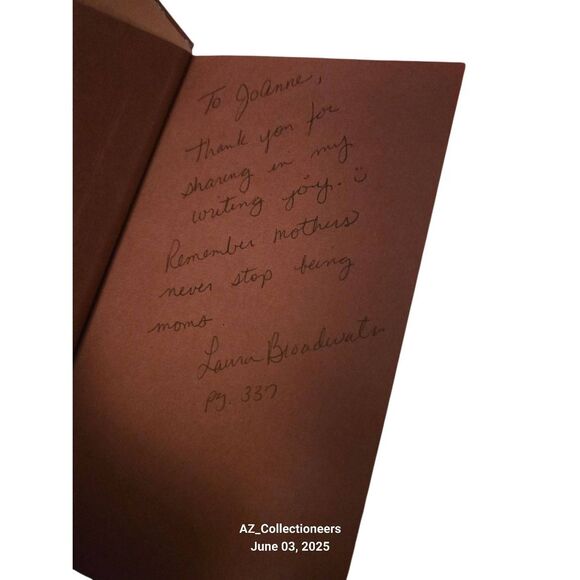 To JoAnne,
Thank you for
sharing in my
writing joy. ☺
Remember mothers
never stop being
moms.
Laura Broadwater
pg. 337
AZ_Collectioneers
June 03, 2025